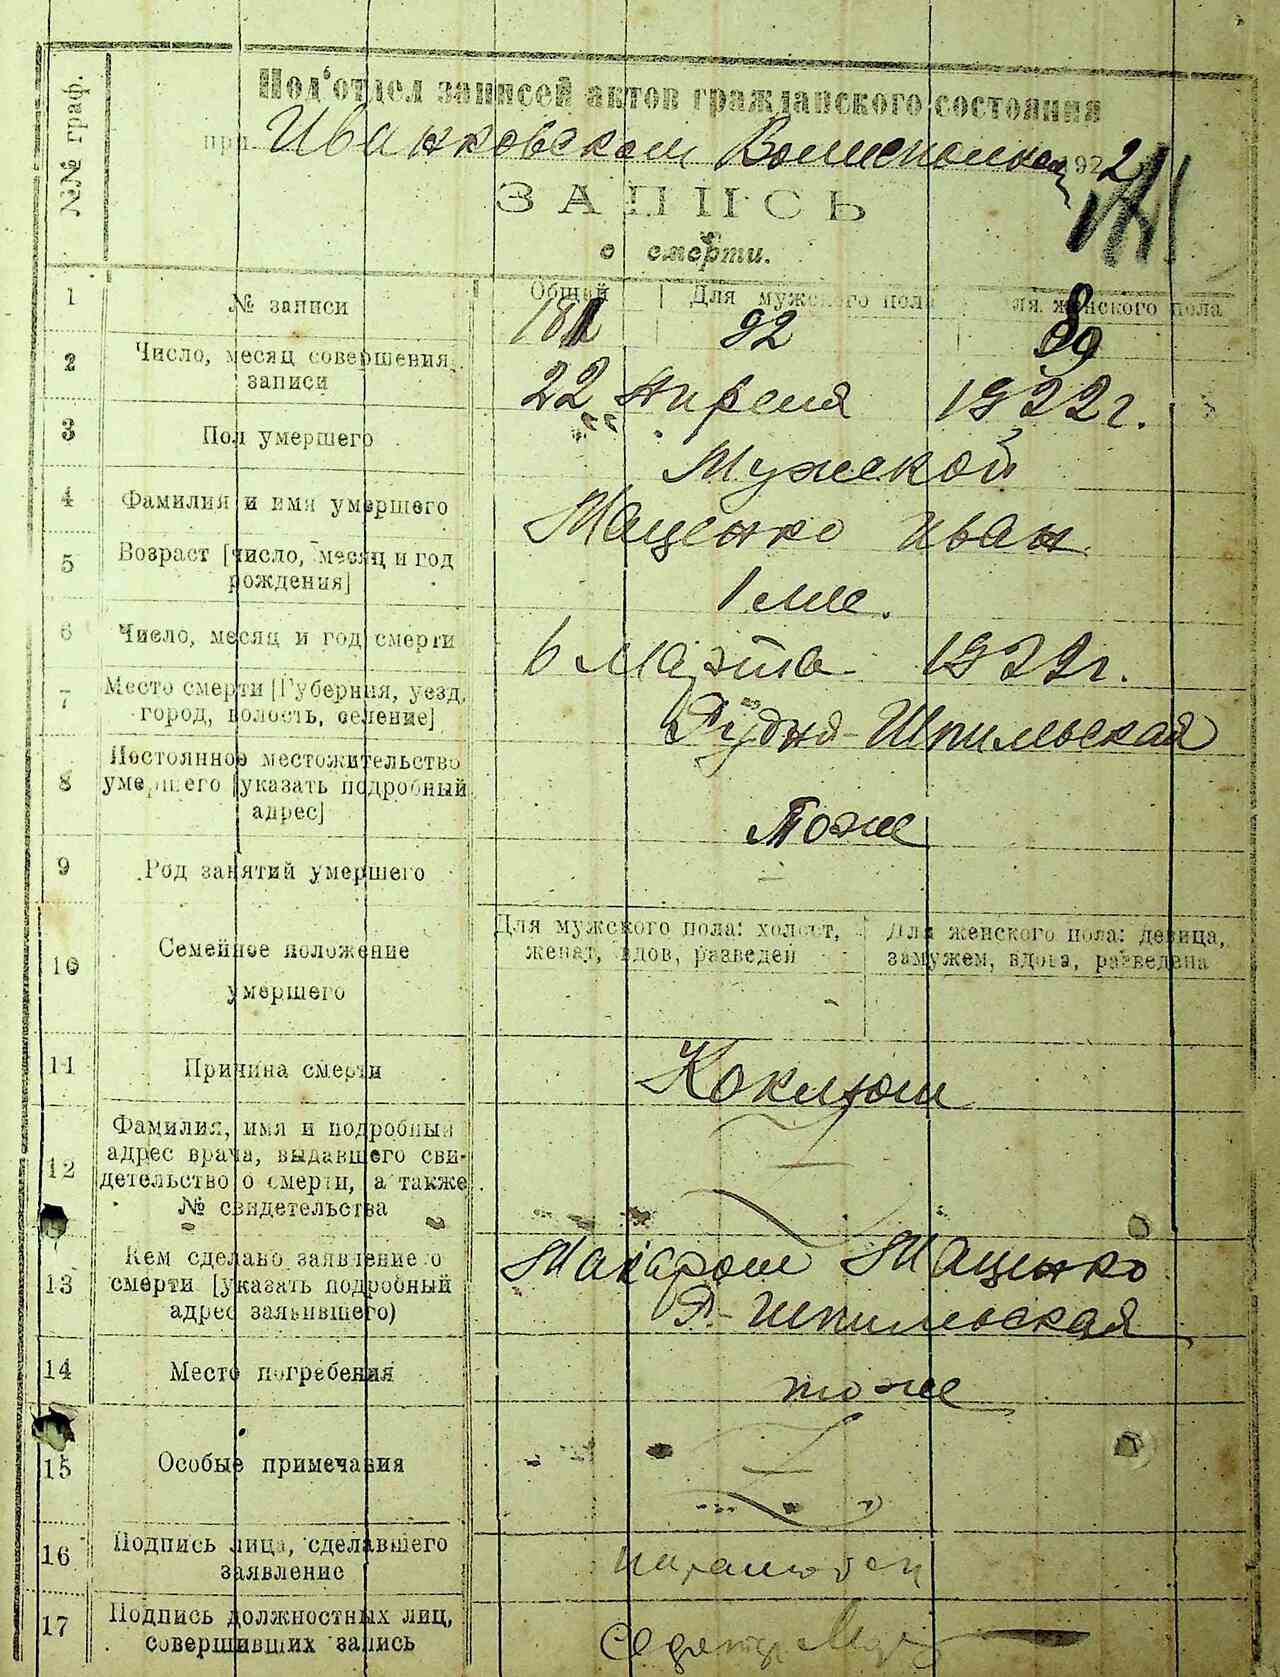 №№ граф.
Под'отдел записей актов гражданского состояния
при Иванковском Волисполкоме 1922
ЗАПИСЬ
о смерти.
1 № записи
Общий Для мужского пола Для женского пола
181 92 89
2 Число, месяц совершения записи
22 Апреля 1922 г.
3 Пол умершего
Мужской
4 Фамилия и имя умершего
Маценко Иван
5 Возраст [число, месяц и год рождения]
1 ме.
6 Число, месяц и год смерти
6 Марта 1922 г.
7 Место смерти [Губерния, уезд, город, волость, селение]
Рудня-Шпильская
8 Постоянное местожительство умершего [указать подробный адрес]
Тоже
9 Род занятий умершего
10 Семейное положение умершего
Для мужского пола: холост, женат, вдов, разведен
Для женского пола: девица, замужем, вдова, разведена
11 Причина смерти
Коклюш
12 Фамилия, имя и подробный адрес врача, выдавшего свидетельство о смерти, а также № свидетельства
13 Кем сделано заявление о смерти [указать подробный адрес заявившего)
Макаром Маценко
Р.-Шпильская
14 Место погребения
тоже
15 Особые примечания
16 Подпись лица, сделавшего заявление
17 Подпись должностных лиц, совершивших запись